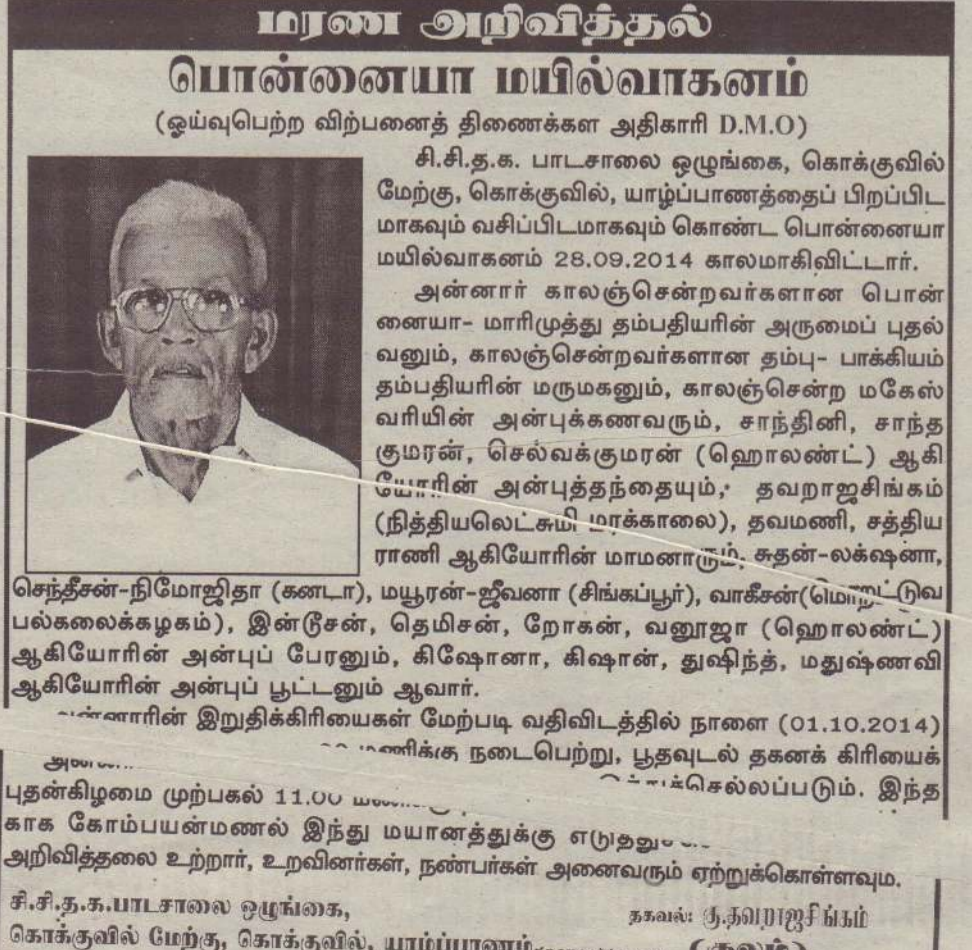 மரண அறிவித்தல்
பொன்னையா மயில்வாகனம்
(ஓய்வுபெற்ற விற்பனைத் திணைக்கள அதிகாரி D.M.O)
சி.சி.த.க. பாடசாலை ஒழுங்கை, கொக்குவில்
மேற்கு, கொக்குவில், யாழ்ப்பாணத்தைப் பிறப்பிட
மாகவும் வசிப்பிடமாகவும் கொண்ட பொன்னையா
மயில்வாகனம் 28.09.2014 காலமாகிவிட்டார்.
அன்னார் காலஞ்சென்றவர்களான பொன்
னையா- மாரிமுத்து தம்பதியரின் அருமைப் புதல்
வனும், காலஞ்சென்றவர்களான தம்பு- பாக்கியம்
தம்பதியரின் மருமகனும், காலஞ்சென்ற மகேஸ்
வரியின் அன்புக்கணவரும், சாந்தினி, சாந்த
குமரன், செல்வக்குமரன் (ஹொலண்ட்) ஆகி
யோரின் அன்புத்தந்தையும், தவறாஜசிங்கம்
(நித்தியலெட்சுமி மரக்காலை), தவமணி, சத்திய
ராணி ஆகியோரின் மாமனாரும், சுதன்-லக்‌ஷனா,
செந்தீசன்-நிமோஜிதா (கனடா), மயூரன்-ஜீவனா (சிங்கப்பூர்), வாகீசன்(மொறட்டுவ
பல்கலைக்கழகம்), இன்டூசன், தெமிசன், றோகன், வனூஜா (ஹொலண்ட்)
ஆகியோரின் அன்புப் பேரனும், கிஷோனா, கிஷான், துஷிந்த், மதுஷ்ணவி
ஆகியோரின் அன்புப் பூட்டனும் ஆவார்.
இறுதிக்கிரியைகள் மேற்படி வதிவிடத்தில் நாளை (01.10.2014)
மணிக்கு நடைபெற்று, பூதவுடல் தகனக் கிரியைக்
இந்த
புதன்கிழமை முற்பகல் 11.00
காக கோம்பயன்மணல் இந்து மயானத்துக்கு
அறிவித்தலை உற்றார், உறவினர்கள், நண்பர்கள் அனைவரும் ஏற்றுக்கொள்ளவும்.
சி.சி.த.க.பாடசாலை ஒழுங்கை,
தகவல்: கு.தவறாஜசிங்கம்
கொக்குவில் மேற்கு, கொக்குவில், யாழ்ப்பாணம்